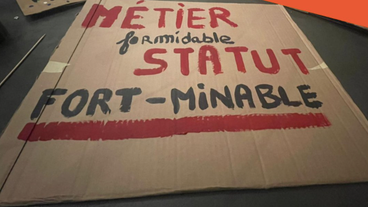 MÉTIER
formidable
STATUT
FORT-MiNABLE